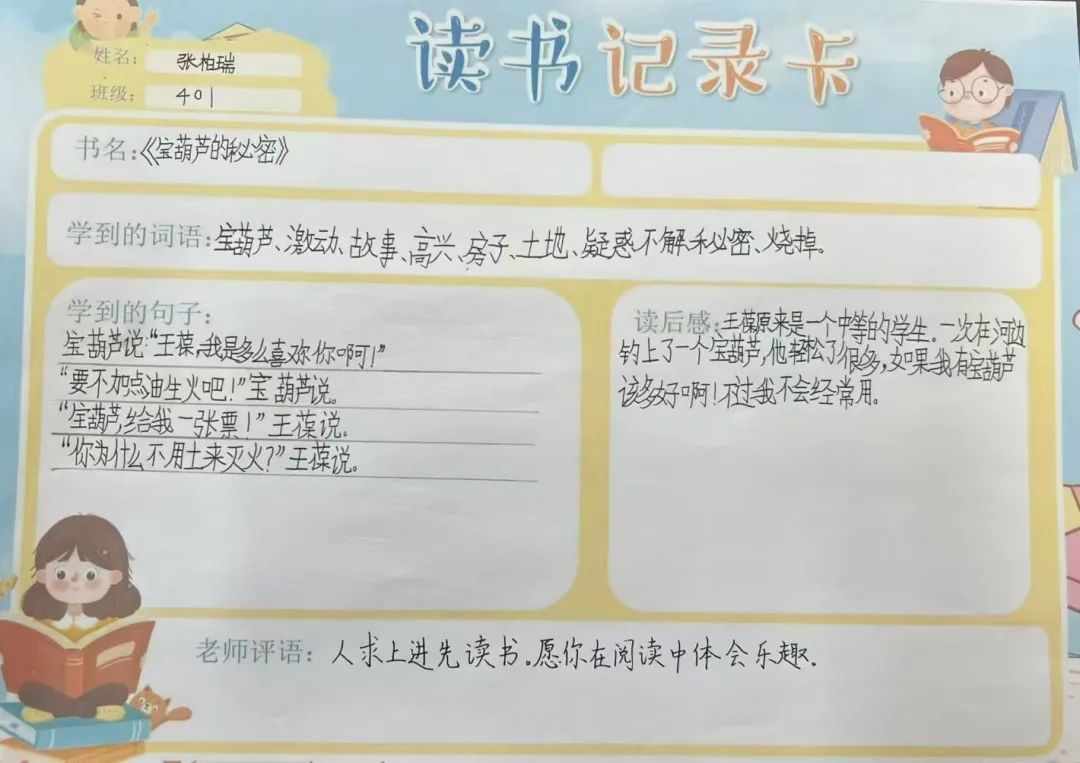 读书记录卡
姓名: 张柏瑞
班级: 401
书名:《宝葫芦的秘密》
学到的词语:宝葫芦、激动、故事、高兴、房子、土地、疑惑不解、秘密、烧掉。
学到的句子:
宝葫芦说:“王葆,我是多么喜欢你啊!”
“要不加点油生火吧!”宝葫芦说。
“宝葫芦,给我一张票!”王葆说。
“你为什么不用土来灭火?”王葆说。
读后感:王葆原来是一个中等的学生。一次在河边
钓上了一个宝葫芦,他轻松了很多,如果我有宝葫芦
该多好啊!不过我不会经常用。
老师评语:人求上进先读书。愿你在阅读中体会乐趣.